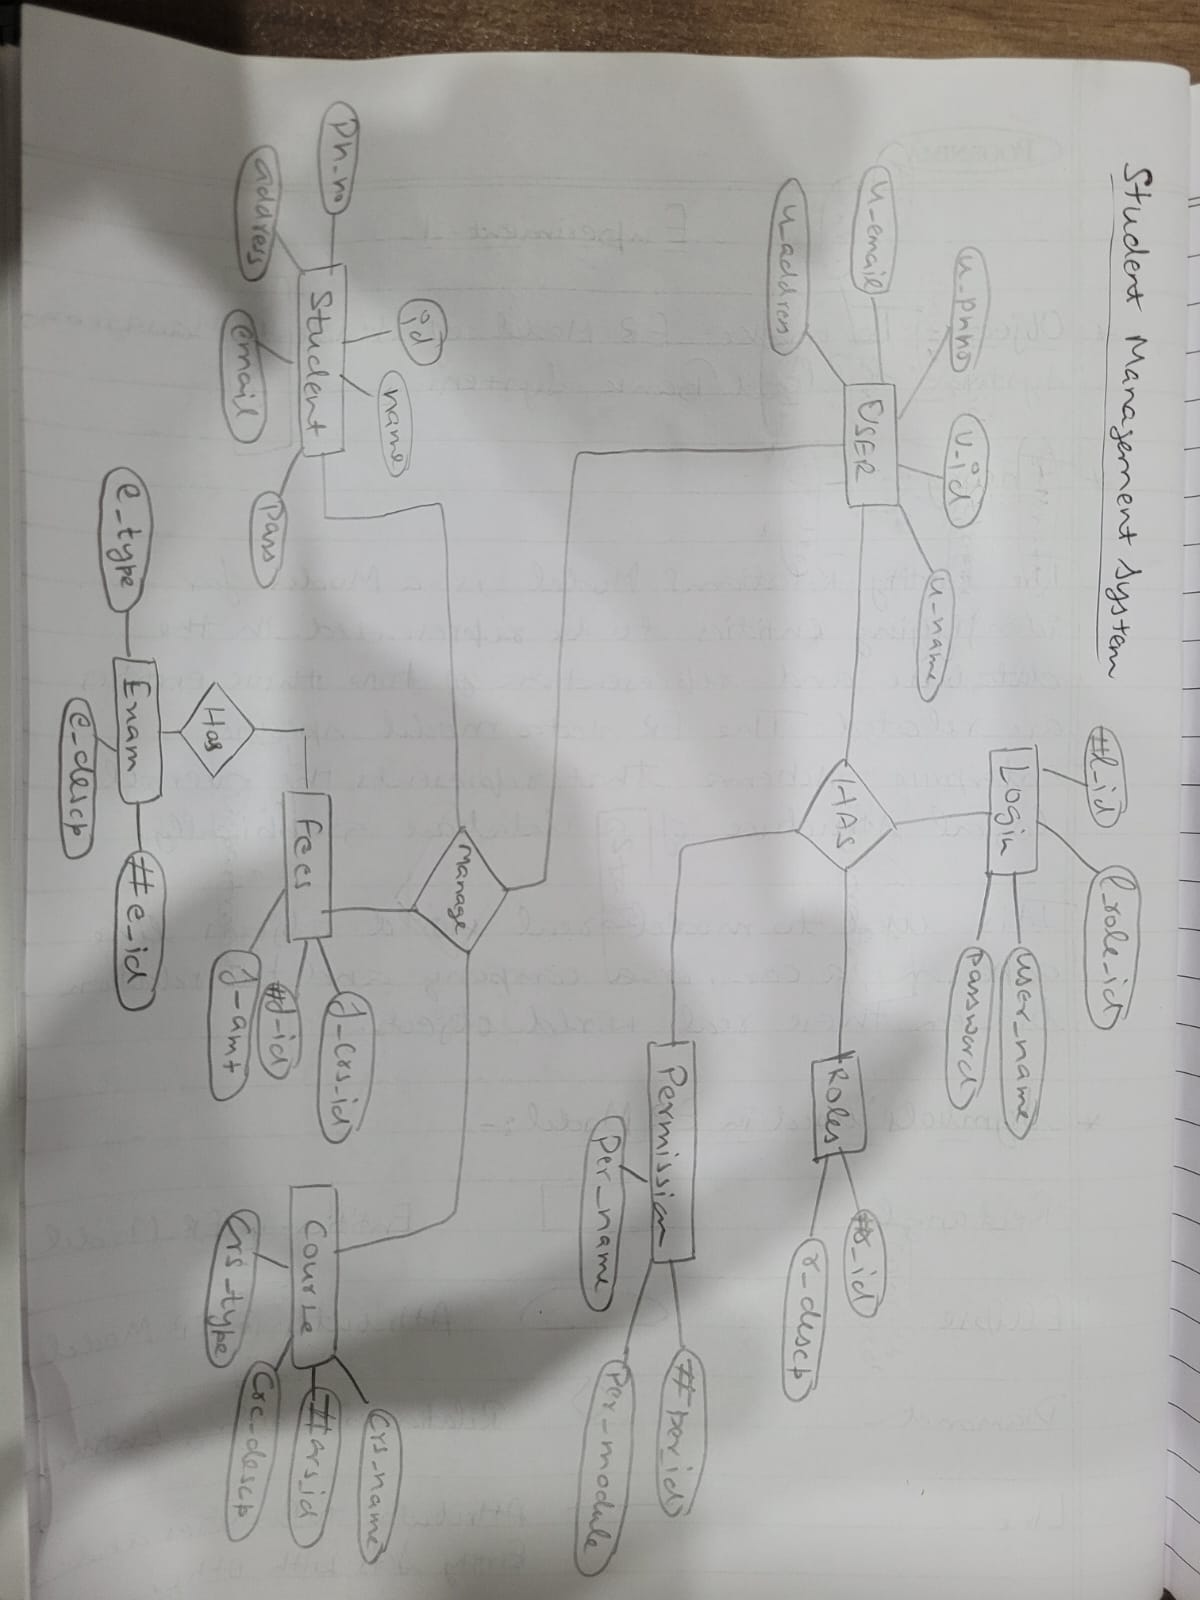 Student Management System
#l_id
l_role_id
Login
user_name
password
u_phno
U_id
u_name
u_email
USER
HAS
Roles
#r_id
r_descp
u_address
Permission
#per_id
Per_name
Per_module
Manage
id
name
Ph_no
Student
address
email
pass
Fees
f_crs_id
#f_id
f_amt
Course
Crs_name
#crs_id
Crc_descp
Crs_type
Has
Exam
e_type
#e_id
e_descp